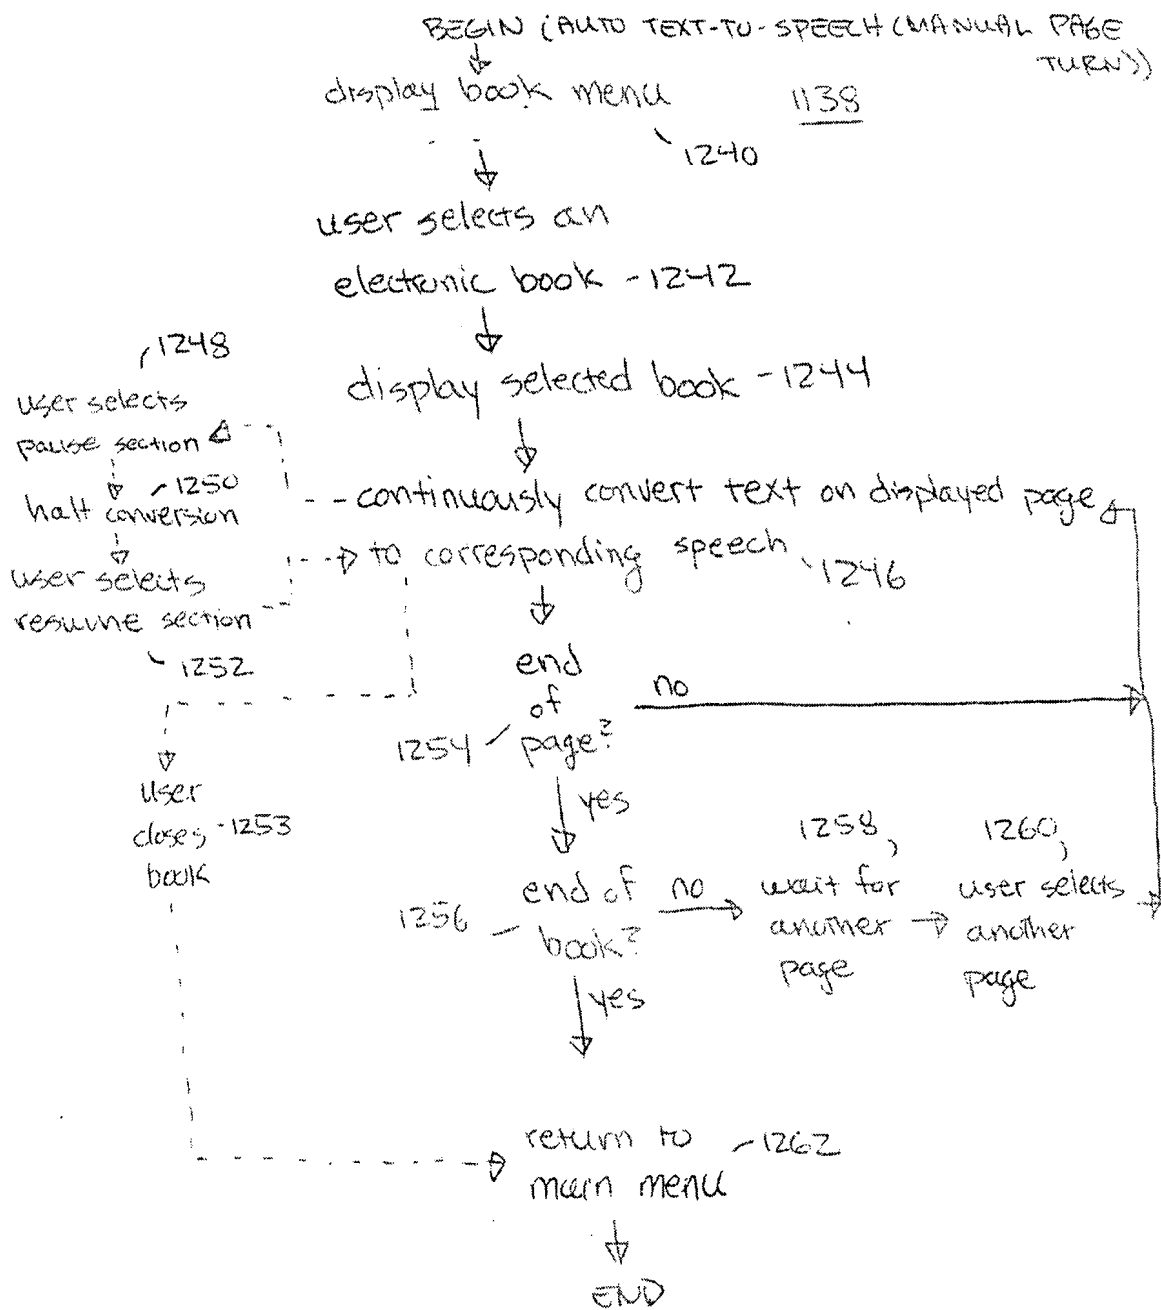 BEGIN (AUTO TEXT-TO-SPEECH (MANUAL PAGE
TURN))
display book menu
1138
1240
user selects an
electronic book - 1242
display selected book - 1244
1248
user selects
pause section
1250
halt conversion
user selects
resume section
1252
continuously convert text on displayed page
to corresponding speech
1246
end
of
page?
1254
no
yes
user
closes
book
1253
end of
book?
1256
no
yes
1258
wait for
another
page
1260
user selects
another
page
return to
main menu
1262
END